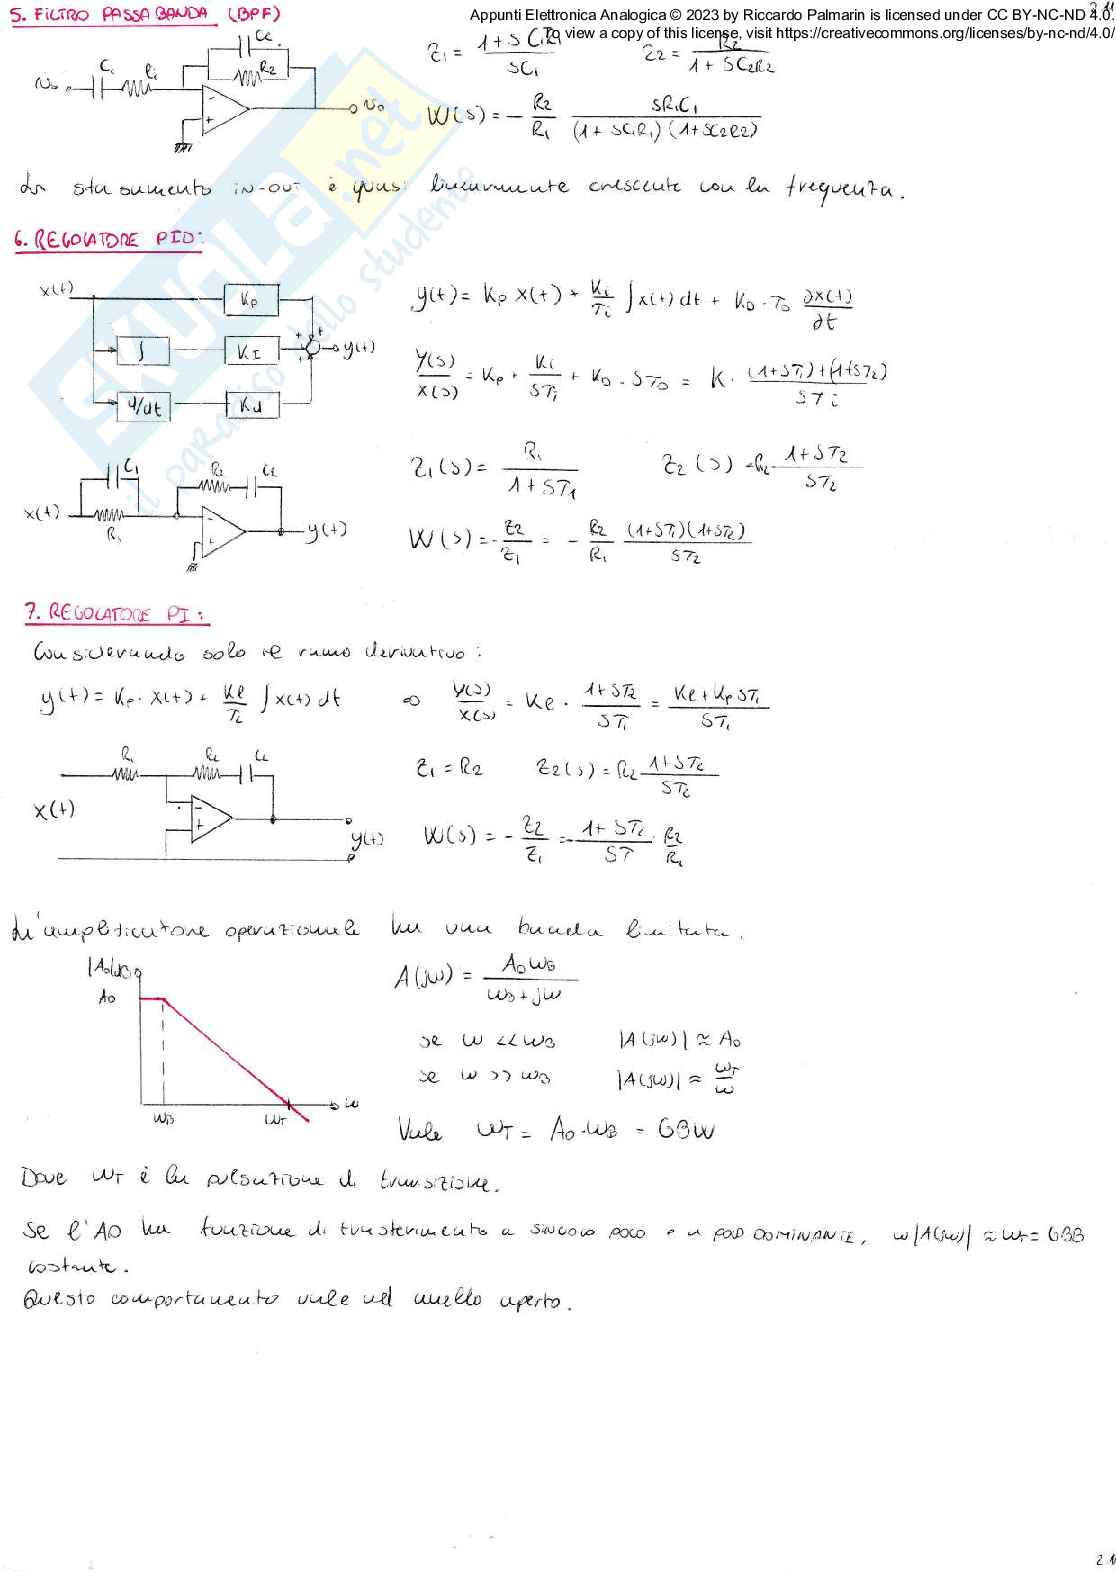 Appunti Elettronica Analogica © 2023 by Riccardo Palmarin is licensed under CC BY-NC-ND 4.0.
To view a copy of this license, visit https://creativecommons.org/licenses/by-nc-nd/4.0/
5. FILTRO PASSA BANDA (BPF)
C2
C1 R1 R2
- +
Z1 = 1+SC1R1 / SC1 Z2 = R2 / 1+SC2R2
W(S) = - R2/R1 SR1C1 / (1+SC1R1)(1+SC2R2)
Lo sfasamento IN-OUT è quasi linearmente crescente con la frequenza.
6. REGOLATORE PID:
x(t) KP
∫ KI y(t)
d/dt Kd
y(t) = KP x(t) + Ki/Ti ∫x(t)dt + KD · TD ∂x(t)/∂t
Y(S)/X(S) = KP + Ki/STi + KD · STD = K · (1+ST1)+(1+ST2) / STi
C1 R2 C2
x(t) R1 - + y(t)
Z1(S) = R1 / 1+ST1 Z2(S) = R2 1+ST2 / ST2
W(S) = - Z2/Z1 = - R2/R1 (1+ST1)(1+ST2) / ST2
7. REGOLATORE PI:
Considerando solo il ramo derivativo:
y(t) = KP · x(t) + Ki/Ti ∫x(t)dt
R1 R2 C2
x(t) - + y(t)
Z1 = R2 Z2(S) = R2 1+ST2 / ST2
W(S) = - Z2/Z1 = - 1+ST2 / ST · R2/R1
L'amplificatore operazionale ha una banda limitata.
A0
ωB ωT ω
A(jω) = A0ωB / ωB+jω
se ω << ωB |A(jω)| ≈ A0
se ω >> ωB |A(jω)| ≈ ωT/ω
Vale ωT = A0 · ωB = GBW
Dove ωT è la pulsazione di transizione.
Se l'AO ha funzione di trasferimento a SINGOLO POLO o a POLO DOMINANTE, ω|A(jω)| ≈ ωT =
costante.
Questo comportamento vale ad anello aperto.